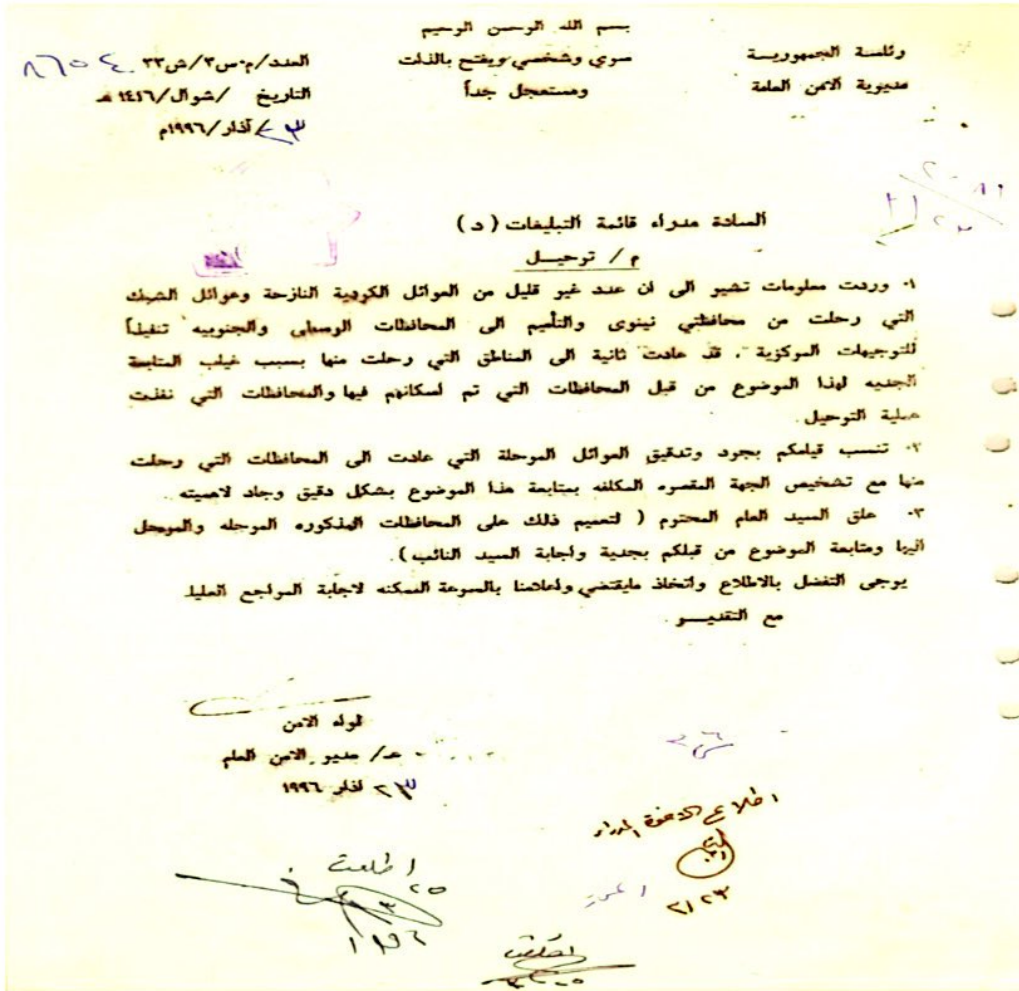 بسم الله الرحمن الرحيم
رئاسة الجمهورية
مديرية الامن العامة
سري وشخصي ويفتح بالذات
ومستعجل جداً
العدد/م.س٣/ش٣٣ ٨٦٥٠٤
التاريخ /شوال/١٤١٦ هـ
٢٣/آذار/١٩٩٦م
السادة مدراء قائمة التبليغات (د)
م/ ترحيـل
١. وردت معلومات تشير الى ان عدد غير قليل من العوائل الكردية النازحة وعوائل الشبك
التي رحلت من محافظتي نينوى والتأميم الى المحافظات الوسطى والجنوبيه تنفيذاً
للتوجيهات المركزية . قد عادت ثانية الى المناطق التي رحلت منها بسبب غياب المتابعة
الجديه لهذا الموضوع من قبل المحافظات التي تم اسكانهم فيها والمحافظات التي نفذت
عملية الترحيل.
٢. تنسب قيامكم بجرد وتدقيق العوائل المرحلة التي عادت الى المحافظات التي رحلت
منها مع تشخيص الجهة المقصره المكلفه بمتابعة هذا الموضوع بشكل دقيق وجاد لاهميته .
٣. علق السيد العام المحترم ( لتعميم ذلك على المحافظات المذكوره المرحله والمرحل
اليها ومتابعة الموضوع من قبلكم بجدية واجابة السيد النائب).
يرجى التفضل بالاطلاع واتخاذ مايقتضي واعلامنا بالسرعة الممكنه لاجابة المراجع العليا.
مع التقديـر.
لواء الامن
ع/ مدير الامن العام
٢٣ اذار ١٩٩٦
اطلاع الاخوة المدراء
٢٣/٣
اطلعت
٢٥
٣
١٩٩٦
اطلعت